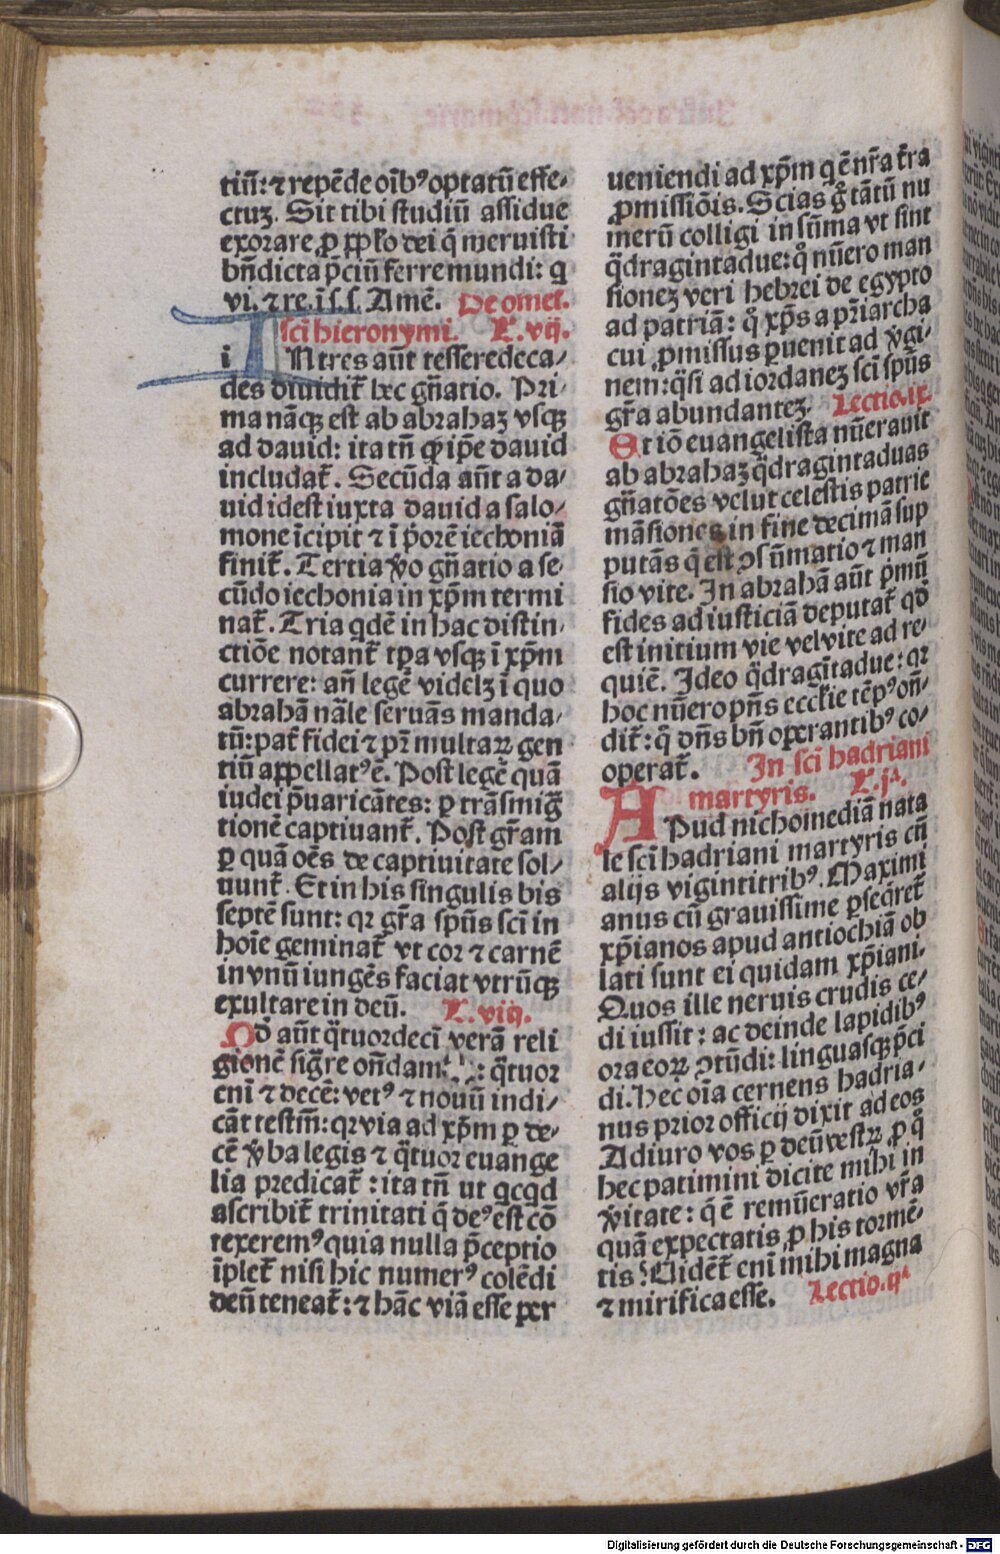 tiū: ⁊ repēde oīb⁹ optatū effe-
ctuꝫ. Sit tibi studiū assidue
exorare ꝓ pplo dei q̄ meruisti
bn̄dicta p̄ciū ferre mundi: q
vi. ⁊ re. ī s. s. Amē. De omel.
sci hieronymi. L. vij.
i Ntres aūt tesseredeca-
des diuidit̄ hec gn̄atio. Pri-
ma nāqꝫ est ab abrahaꝫ vsqꝫ
ad dauid: ita tn̄ ꝙ ip̄e dauid
includat̄. Secūda aūt a da-
uid id est iuxta dauid a salo-
mone īcipit ⁊ ī p̄orē iechoniā
finit̄. Tertia v̄o gn̄atio a se-
cūdo iechonia in xp̄m termi
nat̄. Tria qdē in hac distin-
ctiōe notant̄ tp̄a vsqꝫ ī xp̄m
currere: an̄ legē videlꝫ ī quo
abrahā nāle seruās manda-
tū: pat̄ fidei ⁊ pr̄ multaꝝ gen
tiū appellat⁹ ē. Post legē quā
iudei p̄uaricātes: ꝑ trāsmig̃
tionē captiuant̄. Post gr̄am
ꝑ quā oēs de captiuitate sol-
uunt̄. Et in his singulis bis
septē sunt: qꝛ gr̄a sp̄us sci in
hoīe geminat̄ vt cor ⁊ carnē
in vnū iungēs faciat vtrūqꝫ
exultare in deū. L. viij.
Qd̄ aūt q̄tuordecī verā reli
gionē sig̃re on̄dam⁹: q̄tuor
enī ⁊ decē: vet⁹ ⁊ nouū indi-
cāt testm̄: qꝛ via ad xp̄m ꝑ de-
cē v̄ba legis ⁊ q̄tuor euange
lia predicat̄: ita tn̄ ut qcqd
ascribit̄ trinitati q̄ de⁹ est cō
texerem⁹ quia nulla p̄ceptio
īplet̄ nisi hic numer⁹ colēdi
deū teneat̄: ⁊ hāc viā esse per
ueniendi ad xp̄m q ē nr̄a tr̄a
ꝓmissiōis. Scias g̊ tātū nu
merū colligi in sūma vt sint
q̄dragintadue: q̊ nūero man
sionez veri hebrei de egypto
ad patriā: q̊ xp̄s a pr̄iarcha
cui ꝓmissus ꝑuenit ad v̄gi-
nem: q̄si ad iordanez sci sp̄us
gr̄a abundantez. Lectio. ix.
Et iō euangelista nūerauit
ab abrahaꝫ q̄dragintaduas
gn̄atōes velut celestis patrie
māsiones in fine decimā sup
putās q̄ est ꝯsūmatio ⁊ man
sio vite. In abrahā aūt p̄mū
fides ad iusticiā deputat̄ qd̄
est initium vie vel vite ad re-
quiē. Ideo q̄dragītadue: qꝛ
hoc nūero pn̄s ecclie tēp⁹ on̄-
dit̄: q̄ dn̄s bn̄ operantib⁹ co-
operat̄. In sci hadriani
martyris. L. jᵃ.
APud nichomediā nata
le sci hadriani martyris cū
alijs vigintitrib⁹. Maximi
anus cū grauissime ꝑseq̄ret̄
xp̄ianos apud antiochiā ob
lati sunt ei quidam xp̄iani.
Quos ille neruis crudis ce-
di iussit: ac deinde lapidib⁹
ora eoꝝ ꝯtūdi: linguasqꝫ p̄ci
di. Hec oīa cernens hadria-
nus prior officij dixit ad eos
Adiuro vos ꝑ deū vestꝝ, ꝓ q̊
hec patimini dicite mihi in
v̄itate: q̄ ē remūeratio vr̄a
quā expectatis, ꝓ his tormē-
tis? Uidēt̄ enī mihi magna
⁊ mirifica esse. Lectio. ijᵃ
Digitalisierung gefördert durch die Deutsche Forschungsgemeinschaft - DFG